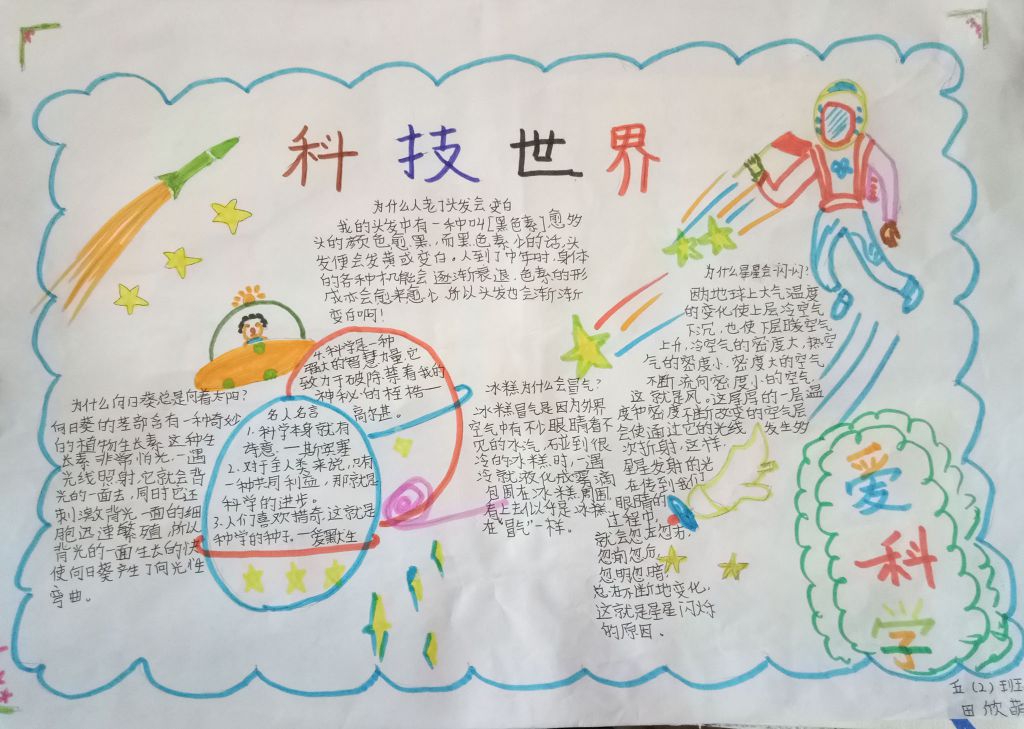 科技世界
为什么人老了头发会变白
我的头发中有一种叫[黑色素]愈多
头的颜色愈黑,而黑色素小的话,头
发便会发黄或变白。人到了中年时,身体
的各种机能会逐渐衰退,色素的形
成亦会愈来愈少,所以头发也会渐渐
变白啊!
为什么向日葵总是向着太阳?
向日葵的茎部含有一种奇妙
的植物生长素,这种生
长素非常怕光,一遇
光线照射,它就会背
光的一面去,同时它还
刺激背光一面的细
胞迅速繁殖,所以
背光的一面生长的快
使向日葵产生了向光性
弯曲。
4.科学是一种
强大的智慧力量,它
致力于破除禁着我的
神秘的桎梏——
高尔基。
名人名言
1.科学本身就有
诗意.—斯宾塞
2.对于全人类来说,只有
一种共同利益,那就是
科学的进步。
3.人们喜欢猎奇,这就是
科学的种子.—爱默生
冰糕为什么会冒气?
冰糕冒气是因为外界
空气中有不少眼睛看不
见的水汽,碰到很
冷的冰糕时,一遇
冷就液化成雾滴
包围在冰糕周围
看上去似乎是冰糕
在"冒气"一样。
为什么星星会闪闪?
因为地球上大气温度
的变化使上层冷空气
下沉,也使下层暖空气
上升,冷空气的密度大,热空
气的密度小,密度大的空气
不断流向密度小的空气,
这就是风。这厚厚的一层温
度和密度不断改变的空气层
会使通过它的光线,发生多
次折射,这样,
星星发射的光
在传到我们
眼睛的
过程中,
就会忽左忽右,
忽前忽后,
忽明忽暗,
总在不断地变化,
这就是星星闪烁
的原因。
爱
科
学
五(2)班
田欣萌